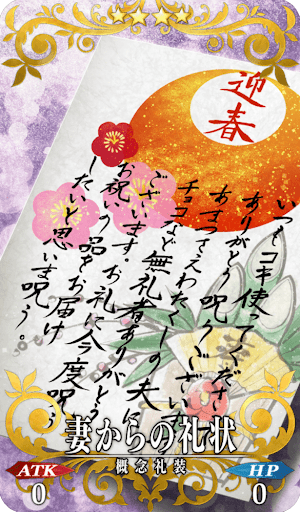 迎春
いつもコキ使ってくださり
ありがとう呪うございます
あまつさえわたくしの夫に
チョコなど無礼者ありがとう
ございます。お礼に今度呪う
お祝いの品をお届け
したいと思いま呪う。
妻からの礼状
ATK
概念礼装
HP
0
0